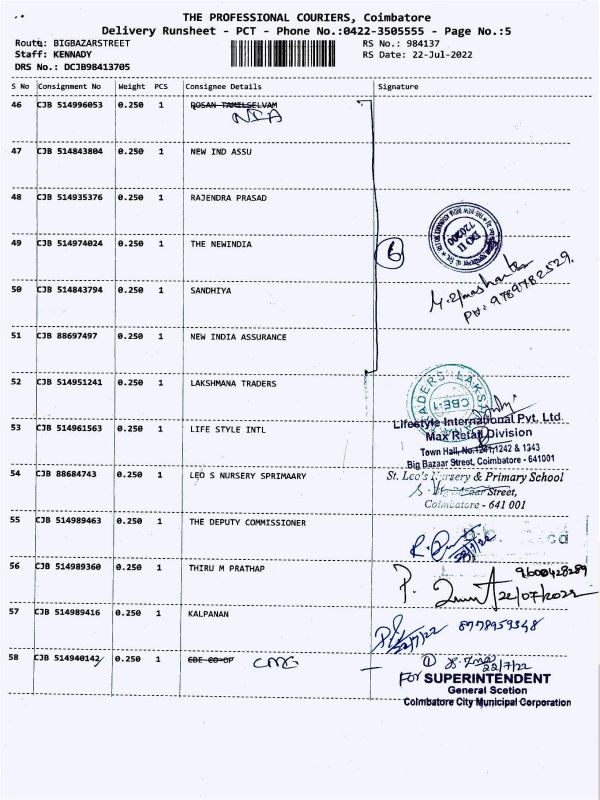 THE PROFESSIONAL COURIERS, Coimbatore
Delivery Runsheet - PCT - Phone No.:0422-3505555 - Page No.:5
Route: BIGBAZARSTREET RS No.: 984137
Staff: KENNADY RS Date: 22-Jul-2022
DRS No.: DCJB98413705
S No Consignment No Weight PCS Consignee Details Signature
46 CJB 514996053 0.250 1 ROSAN TAMILSELVAM
NIA
47 CJB 514843804 0.250 1 NEW IND ASSU
48 CJB 514935376 0.250 1 RAJENDRA PRASAD
49 CJB 514974024 0.250 1 THE NEWINDIA
6
50 CJB 514843794 0.250 1 SANDHIYA
PH: 9789782529.
51 CJB 88697497 0.250 1 NEW INDIA ASSURANCE
52 CJB 514951241 0.250 1 LAKSHMANA TRADERS
CBE-1
53 CJB 514961563 0.250 1 LIFE STYLE INTL
Lifestyle International Pvt. Ltd.
Max Retail Division
Town Hall, No.1241,1242 & 1343
Big Bazaar Street, Coimbatore - 641001
54 CJB 88684743 0.250 1 LEO S NURSERY SPRIMAARY
St. Leo's Nursery & Primary School
Big Bazaar Street,
Coimbatore - 641 001
55 CJB 514989463 0.250 1 THE DEPUTY COMMISSIONER
56 CJB 514989360 0.250 1 THIRU M PRATHAP
9600428289
22/07/2022
57 CJB 514989416 0.250 1 KALPANAN
22/7/22 8778959348
58 CJB 514940142 0.250 1 CBE CO-OP CMC
22/7/22
For SUPERINTENDENT
General Scetion
Coimbatore City Municipal Corporation